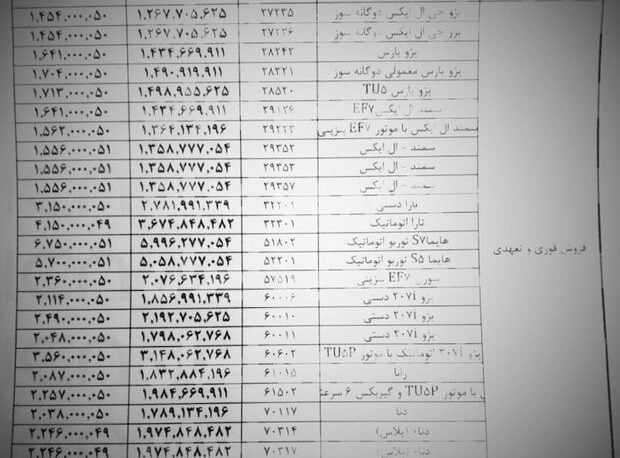 پژو جی ال ایکس دوگانه سوز ۲۷۲۳۵ ۱.۲۶۷.۷۰۵.۶۲۵ ۱.۴۵۴.۰۰۰.۰۵۰
پژو جی ال ایکس دوگانه سوز ۲۷۲۳۶ ۱.۲۶۷.۷۰۵.۶۲۵ ۱.۴۵۴.۰۰۰.۰۵۰
پژو پارس ۲۸۲۴۲ ۱.۴۳۴.۶۶۹.۹۱۱ ۱.۶۴۱.۰۰۰.۰۵۰
پژو پارس معمولی دوگانه سوز ۲۸۳۲۱ ۱.۴۹۰.۹۱۹.۹۱۱ ۱.۷۰۴.۰۰۰.۰۵۰
پژو پارس TU۵ ۲۸۵۲۰ ۱.۴۹۸.۹۵۵.۶۲۵ ۱.۷۱۳.۰۰۰.۰۵۰
سمند ال ایکس EF۷ ۲۹۱۲۶ ۱.۴۳۴.۶۶۹.۹۱۱ ۱.۶۴۱.۰۰۰.۰۵۰
سمند ال ایکس با موتور EF۷ بنزینی ۲۹۲۲۳ ۱.۳۶۴.۱۳۴.۱۹۶ ۱.۵۶۲.۰۰۰.۰۵۰
سمند - ال ایکس ۲۹۳۵۲ ۱.۳۵۸.۷۷۷.۰۵۴ ۱.۵۵۶.۰۰۰.۰۵۱
سمند - ال ایکس ۲۹۳۵۳ ۱.۳۵۸.۷۷۷.۰۵۴ ۱.۵۵۶.۰۰۰.۰۵۱
سمند - ال ایکس ۲۹۳۵۷ ۱.۳۵۸.۷۷۷.۰۵۴ ۱.۵۵۶.۰۰۰.۰۵۱
تارا دستی ۳۲۲۰۱ ۲.۷۸۱.۹۹۱.۳۳۹ ۳.۱۵۰.۰۰۰.۰۵۰
تارا اتوماتیک ۳۲۳۰۱ ۳.۶۷۴.۸۴۸.۴۸۲ ۴.۱۵۰.۰۰۰.۰۴۹
فروش فوری و تعهدی
هایما S۷ توربو اتوماتیک ۵۱۸۰۲ ۵.۹۹۶.۲۷۷.۰۵۴ ۶.۷۵۰.۰۰۰.۰۵۱
هایما S۵ توربو اتوماتیک ۵۲۲۰۱ ۵.۰۵۸.۷۷۷.۰۵۴ ۵.۷۰۰.۰۰۰.۰۵۱
سورن EF۷ بنزینی ۵۷۵۱۹ ۲.۰۷۶.۶۳۴.۱۹۶ ۲.۳۶۰.۰۰۰.۰۵۰
پژو ۲۰۷i دستی ۶۰۰۰۶ ۱.۸۵۶.۹۹۱.۳۳۹ ۲.۱۱۴.۰۰۰.۰۵۰
پژو ۲۰۷i دستی ۶۰۰۱۰ ۲.۱۹۲.۷۰۵.۶۲۵ ۲.۴۹۰.۰۰۰.۰۵۰
پژو ۲۰۷i دستی ۶۰۰۱۱ ۱.۷۹۸.۰۶۲.۷۶۸ ۲.۰۴۸.۰۰۰.۰۵۰
پژو ۲۰۷i اتوماتیک با موتور TU۵P ۶۰۶۰۲ ۳.۱۴۸.۰۶۲.۷۶۸ ۳.۵۶۰.۰۰۰.۰۵۰
رانا ۶۱۰۱۵ ۱.۸۳۲.۸۸۴.۱۹۶ ۲.۰۸۷.۰۰۰.۰۵۰
با موتور TU۵P و گیربکس ۶ سرعته ۶۱۵۰۲ ۱.۹۸۴.۶۶۹.۹۱۱ ۲.۲۵۷.۰۰۰.۰۵۰
دنا ۷۰۱۱۷ ۱.۷۸۹.۱۳۴.۱۹۶ ۲.۰۳۸.۰۰۰.۰۵۰
دنا+ (پلاس) ۷۰۳۱۴ ۱.۹۷۴.۸۴۸.۴۸۲ ۲.۲۴۶.۰۰۰.۰۴۹
دنا+ (پلاس) ۷۰۳۱۷ ۱.۹۷۴.۸۴۸.۴۸۲ ۲.۲۴۶.۰۰۰.۰۵۰